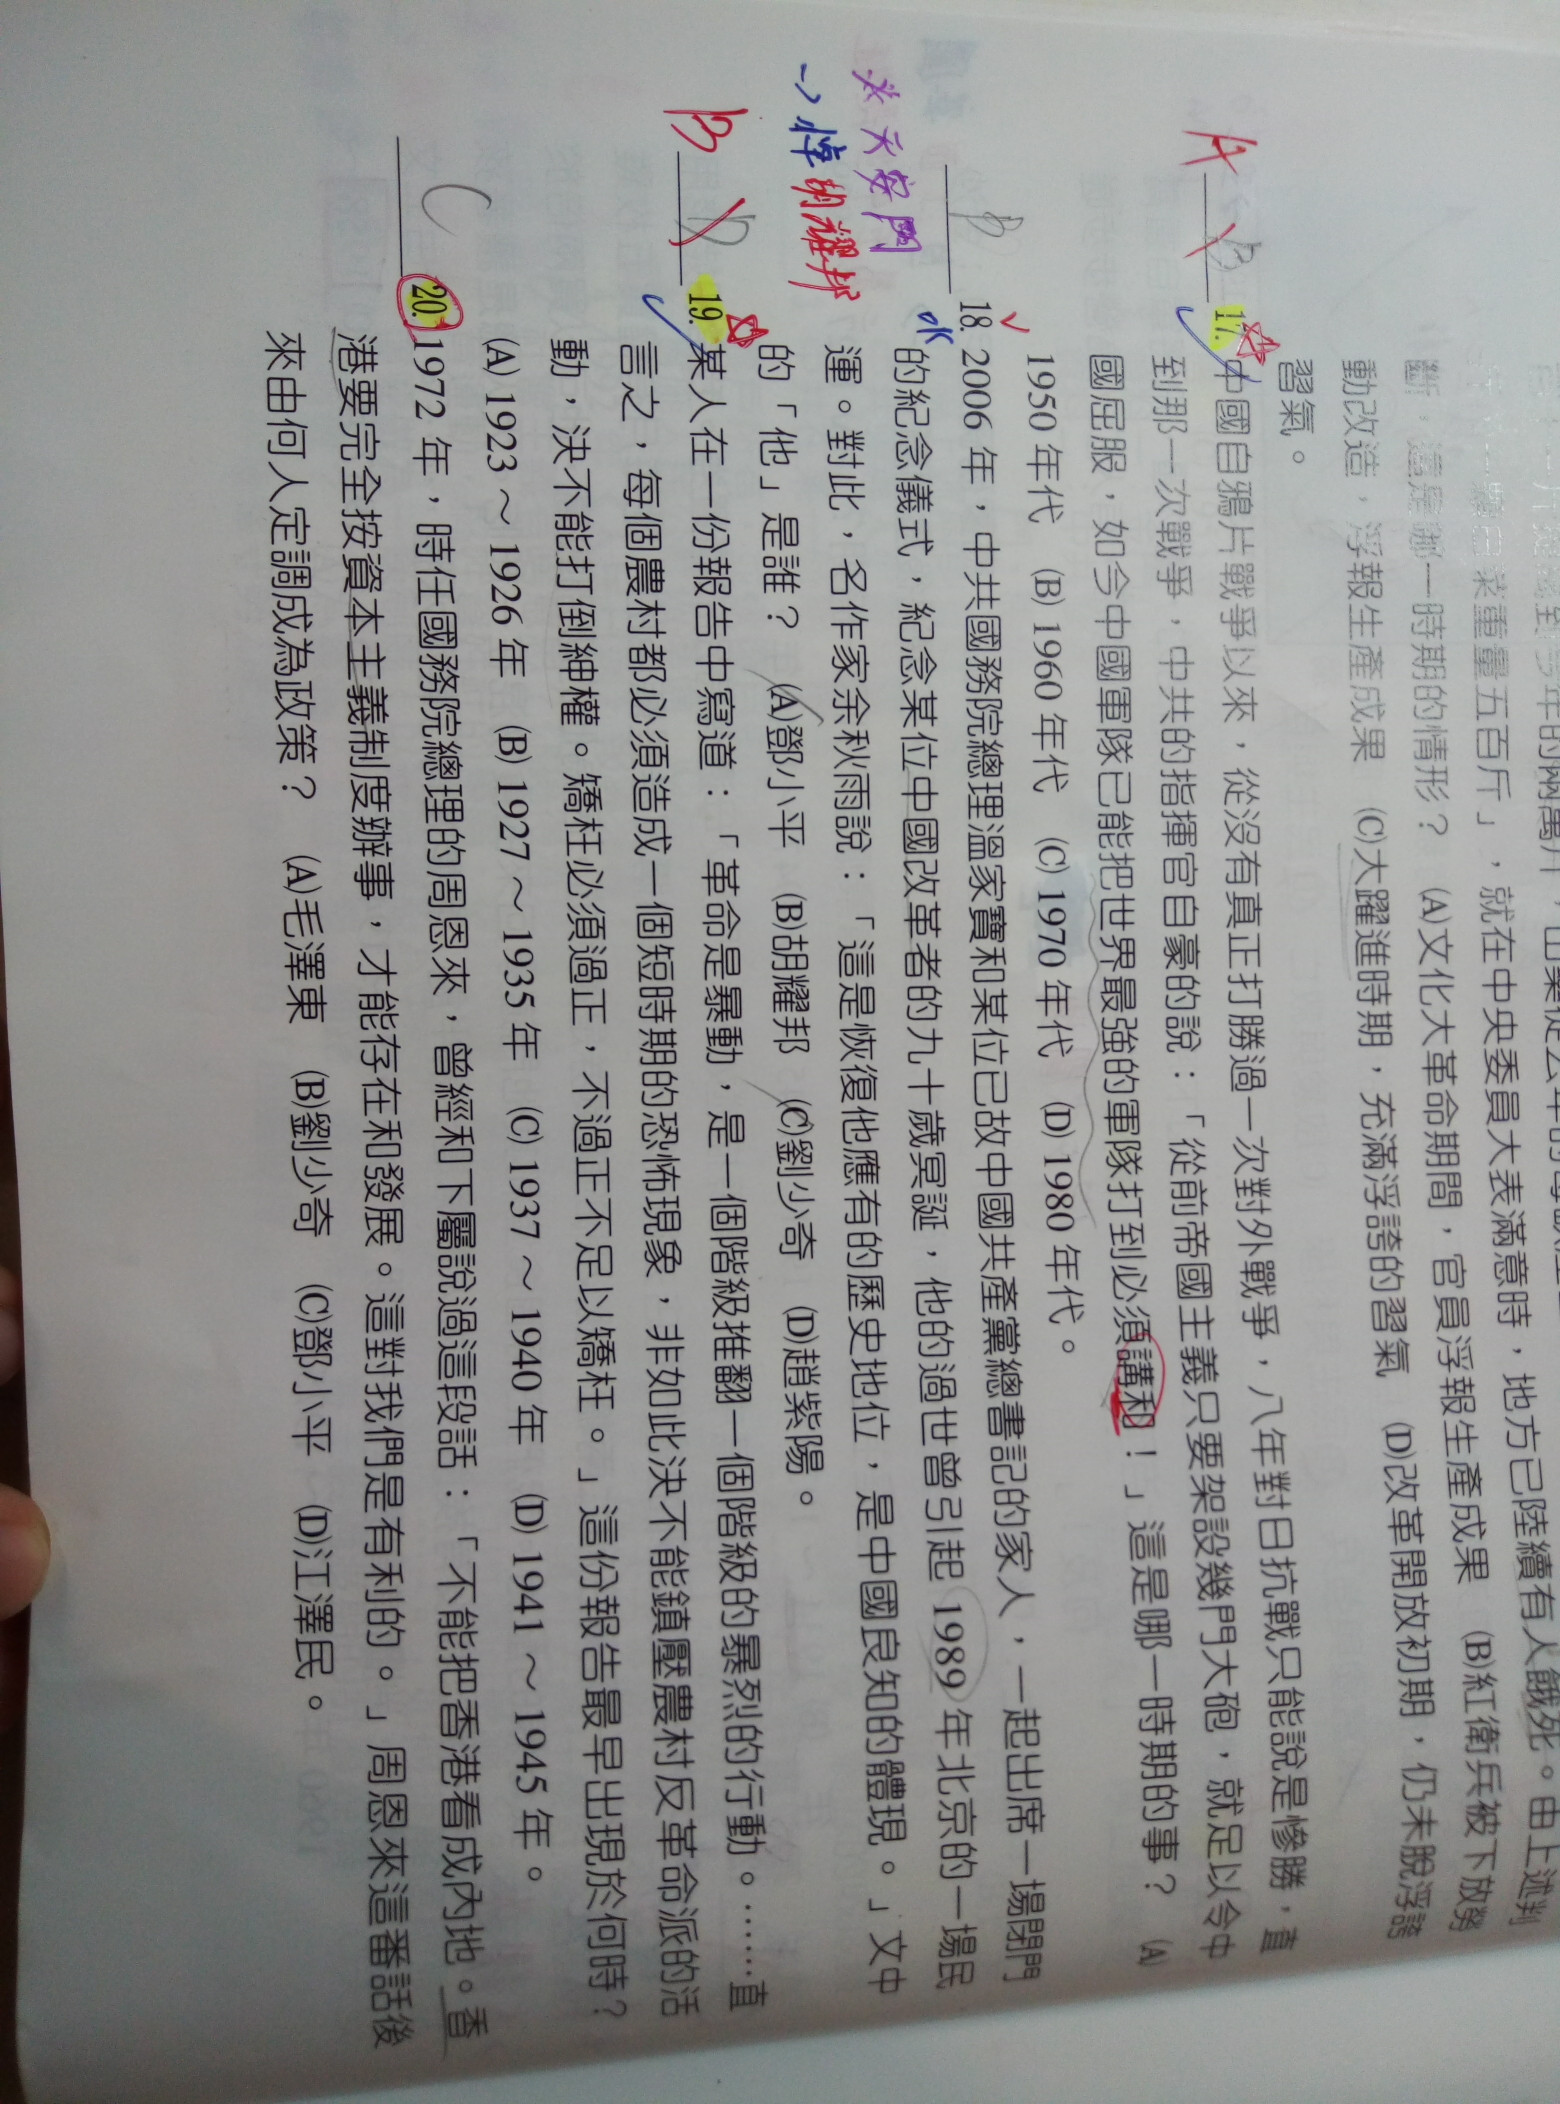 斷，這是哪一時期的情形？ (A)文化大革命期間，官員浮報生產成果 (B)紅衛兵被下放勞
動改造，浮報生產成果 (C)大躍進時期，充滿浮誇的習氣 (D)改革開放初期，仍未脫浮誇
習氣。
A
B
17. 中國自鴉片戰爭以來，從沒有真正打勝過一次對外戰爭，八年對日抗戰只能說是慘勝，直
到那一次戰爭，中共的指揮官自豪的說：「從前帝國主義只要架設幾門大砲，就足以令中
國屈服，如今中國軍隊已能把世界最強的軍隊打到必須講和！」這是哪一時期的事？ (A)
1950 年代 (B) 1960 年代 (C) 1970 年代 (D) 1980 年代。
B
ok
18. 2006 年，中共國務院總理溫家寶和某位已故中國共產黨總書記的家人，一起出席一場閉門
的紀念儀式，紀念某位中國改革者的九十歲冥誕，他的過世曾引起 1989 年北京的一場民
運。對此，名作家余秋雨說：「這是恢復他應有的歷史地位，是中國良知的體現。」文中
的「他」是誰？ (A)鄧小平 (B)胡耀邦 (C)劉少奇 (D)趙紫陽。
※天安門
→悼胡耀邦
B
D
19. 某人在一份報告中寫道：「革命是暴動，是一個階級推翻一個階級的暴烈的行動。……直
言之，每個農村都必須造成一個短時期的恐怖現象，非如此決不能鎮壓農村反革命派的活
動，決不能打倒紳權。矯枉必須過正，不過正不足以矯枉。」這份報告最早出現於何時？
(A) 1923～1926 年 (B) 1927～1935 年 (C) 1937～1940 年 (D) 1941～1945 年。
C
20. 1972 年，時任國務院總理的周恩來，曾經和下屬說過這段話：「不能把香港看成內地。香
港要完全按資本主義制度辦事，才能存在和發展。這對我們是有利的。」周恩來這番話後
來由何人定調成為政策？ (A)毛澤東 (B)劉少奇 (C)鄧小平 (D)江澤民。